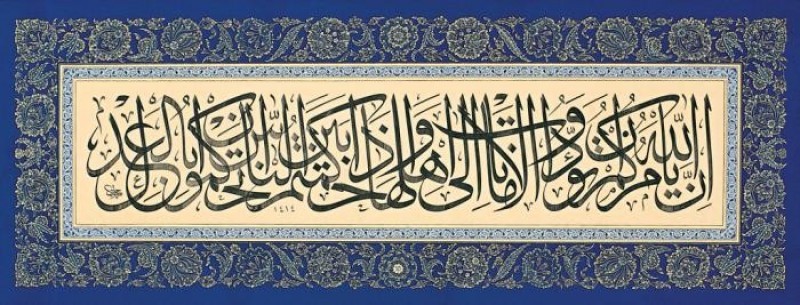 إن الله يأمركم أن تؤدوا الأمانات إلى أهلها وإذا حكمتم بين الناس أن تحكموا بالعدل
١٤١٤